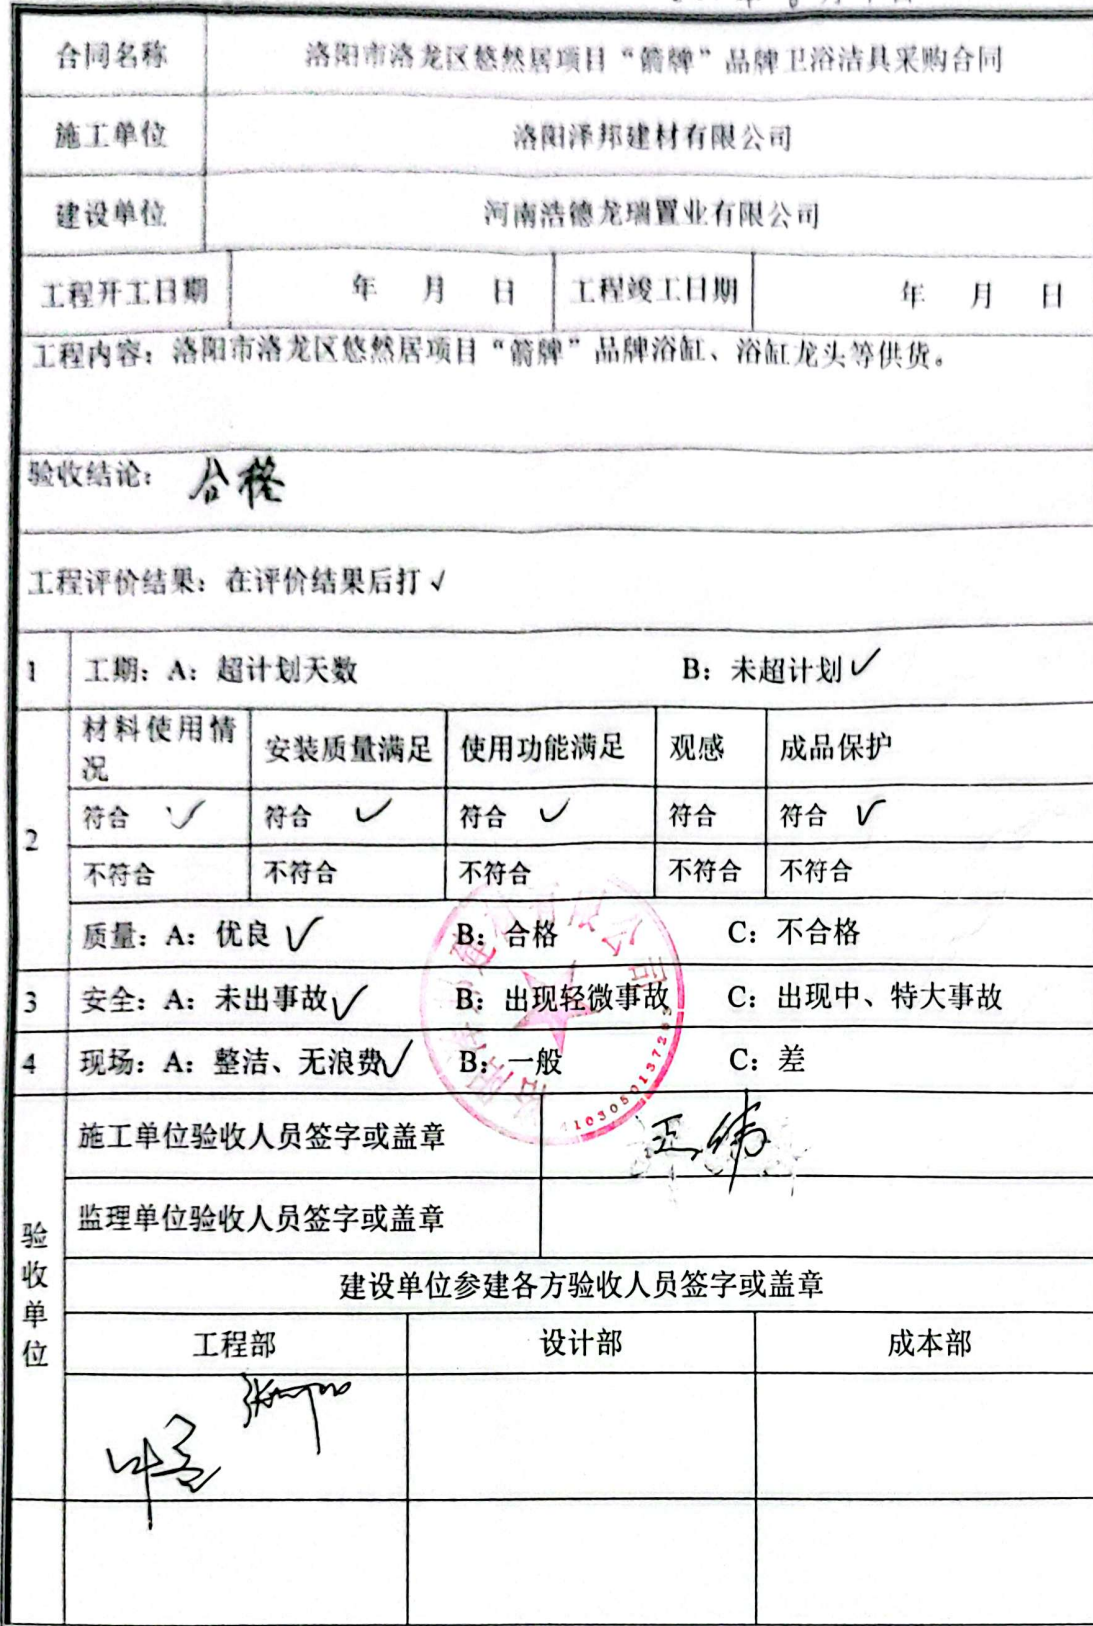 年 月 日
合同名称 洛阳市洛龙区悠然居项目“箭牌”品牌卫浴洁具采购合同
施工单位 洛阳泽邦建材有限公司
建设单位 河南浩德龙瑞置业有限公司
工程开工日期 年 月 日 工程竣工日期 年 月 日
工程内容：洛阳市洛龙区悠然居项目“箭牌”品牌浴缸、浴缸龙头等供货。
验收结论： 合格
工程评价结果：在评价结果后打√
1 工期：A：超计划天数 B：未超计划✓
材料使用情况 安装质量满足 使用功能满足 观感 成品保护
2
符合 ✓ 符合 ✓ 符合 ✓ 符合 符合 ✓
不符合 不符合 不符合 不符合 不符合
质量：A：优良✓ B：合格 C：不合格
3 安全：A：未出事故✓ B：出现轻微事故 C：出现中、特大事故
4 现场：A：整洁、无浪费✓ B：一般 C：差
验收单位
施工单位验收人员签字或盖章
监理单位验收人员签字或盖章
建设单位参建各方验收人员签字或盖章
工程部 设计部 成本部